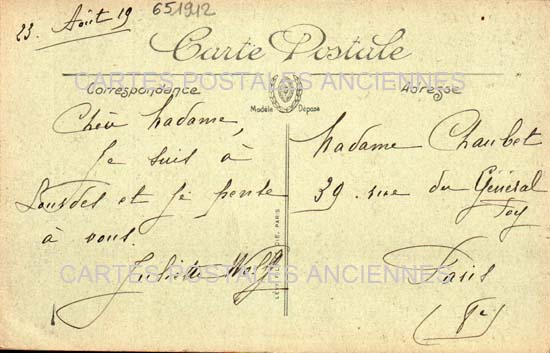 23. Août 19
651912
Carte Postale
CARTES POSTALES ANCIENNES
Correspondance
Adresse
Modèle Déposé
Chère Madame,
Je suis à
Lourdes et je pense
à vous.
Juliette
Madame Chaubet
39. rue du Général
Foy
Paris
CARTES POSTALES ANCIENNES
PARIS